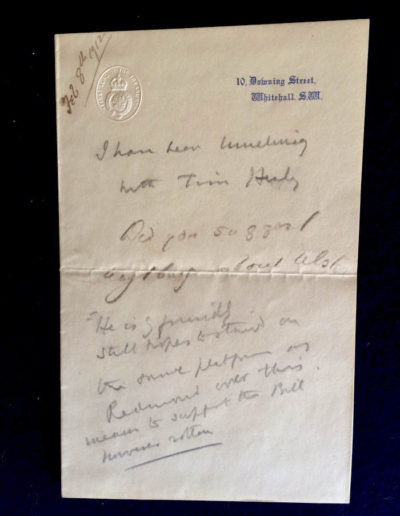 Feb 8th 1912
10, Downing Street,
Whitehall, S.W.
I have been lunching
with Tim Healy
Did you suggest
anything about Ulster
"He is friendly
still hopes to stand on
the same platform as
Redmond over this.
means to support the Bill
however rotten